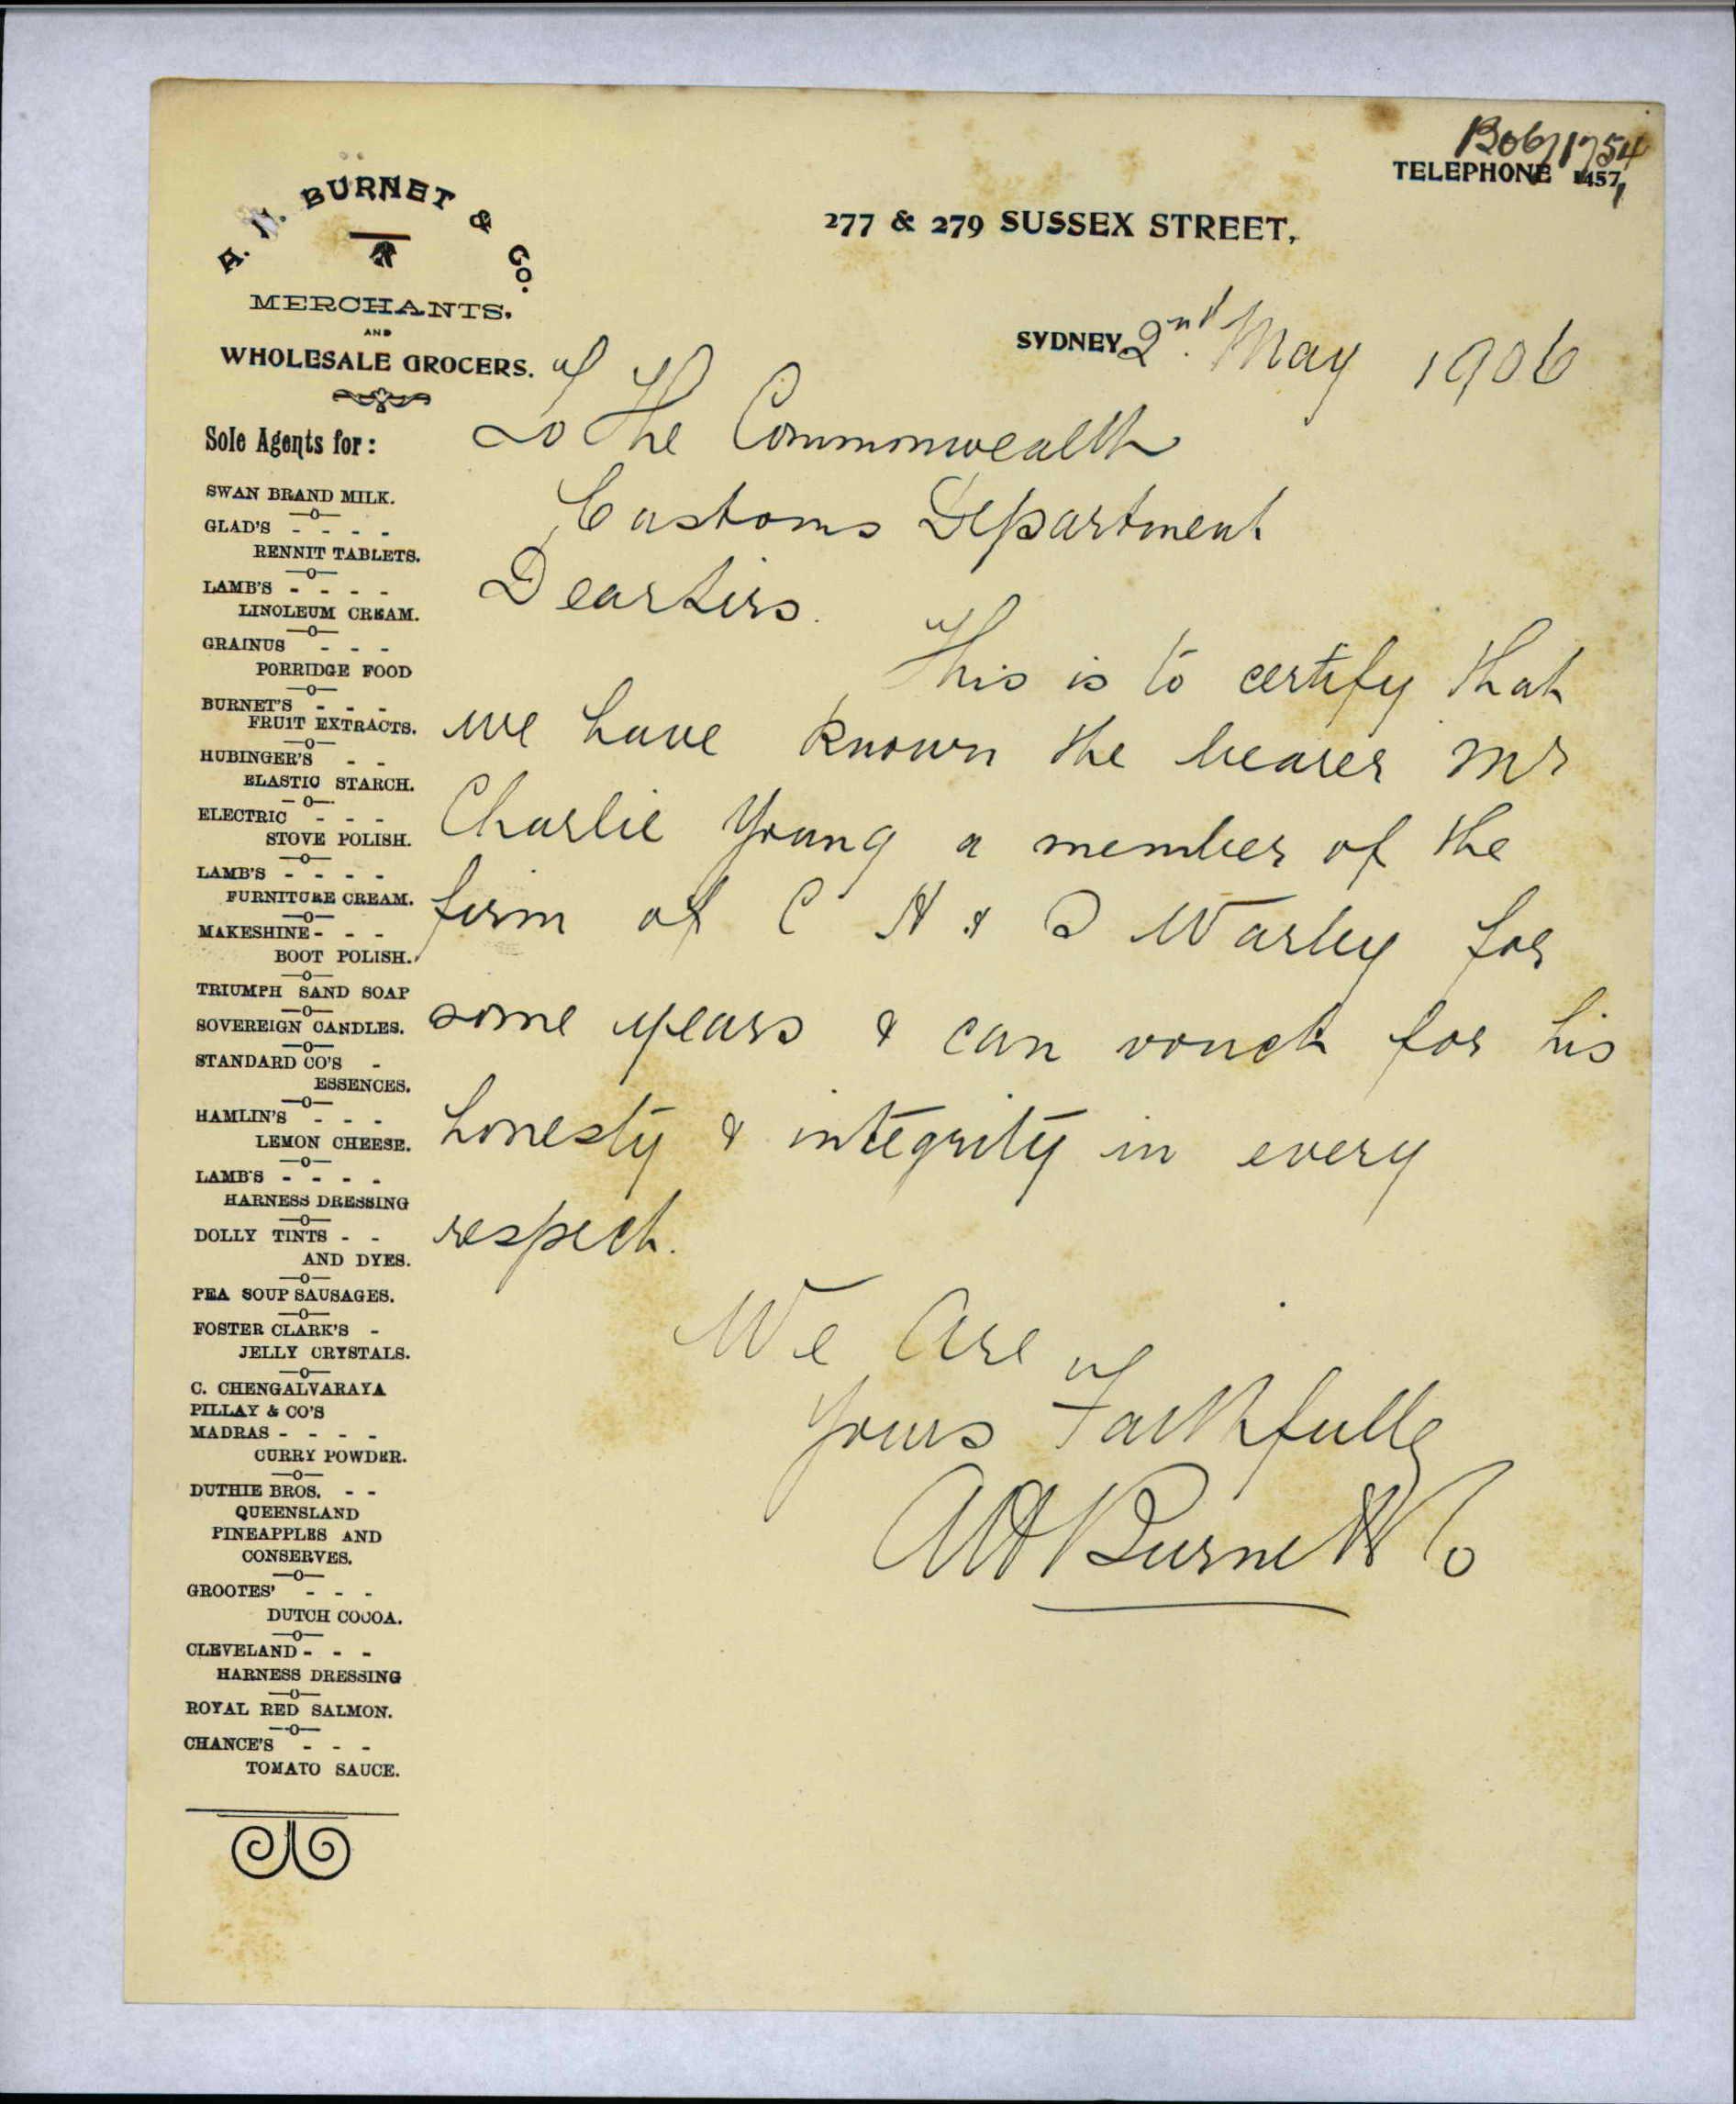 B06/1754
TELEPHONE 1457,
A. H. BURNET & CO.
277 & 279 SUSSEX STREET,
MERCHANTS.
AND
WHOLESALE GROCERS.
SYDNEY 2nd. May 1906
Sole Agents for:
SWAN BRAND MILK.
GLAD'S - - - -
RENNIT TABLETS.
LAMB'S - - - -
LINOLEUM CREAM.
GRAINUS - - -
PORRIDGE FOOD
BURNET'S - - -
FRUIT EXTRACTS.
HUBINGER'S - -
ELASTIC STARCH.
ELECTRIC - - -
STOVE POLISH.
LAMB'S - - - -
FURNITURE CREAM.
MAKESHINE - - -
BOOT POLISH.
TRIUMPH SAND SOAP
SOVEREIGN CANDLES.
STANDARD CO'S -
ESSENCES.
HAMLIN'S - - -
LEMON CHEESE.
LAMB'S - - - -
HARNESS DRESSING
DOLLY TINTS - -
AND DYES.
PEA SOUP SAUSAGES.
FOSTER CLARK'S -
JELLY CRYSTALS.
C. CHENGALVARAYA
PILLAY & CO'S
MADRAS - - - -
CURRY POWDER.
DUTHIE BROS. - -
QUEENSLAND
PINEAPPLES AND
CONSERVES.
GROOTES' - - -
DUTCH COCOA.
CLEVELAND - - -
HARNESS DRESSING
ROYAL RED SALMON.
CHANCE'S - - -
TOMATO SAUCE.
To The Commonwealth
Customs Department
Dear Sirs.
This is to certify that
we have known the bearer Mr
Charlie Young a member of the
firm of C H & D Warley for
some years & can vouch for his
honesty & integrity in every
respect.
We Are
Yours Faithfully
AH Burnet & Co